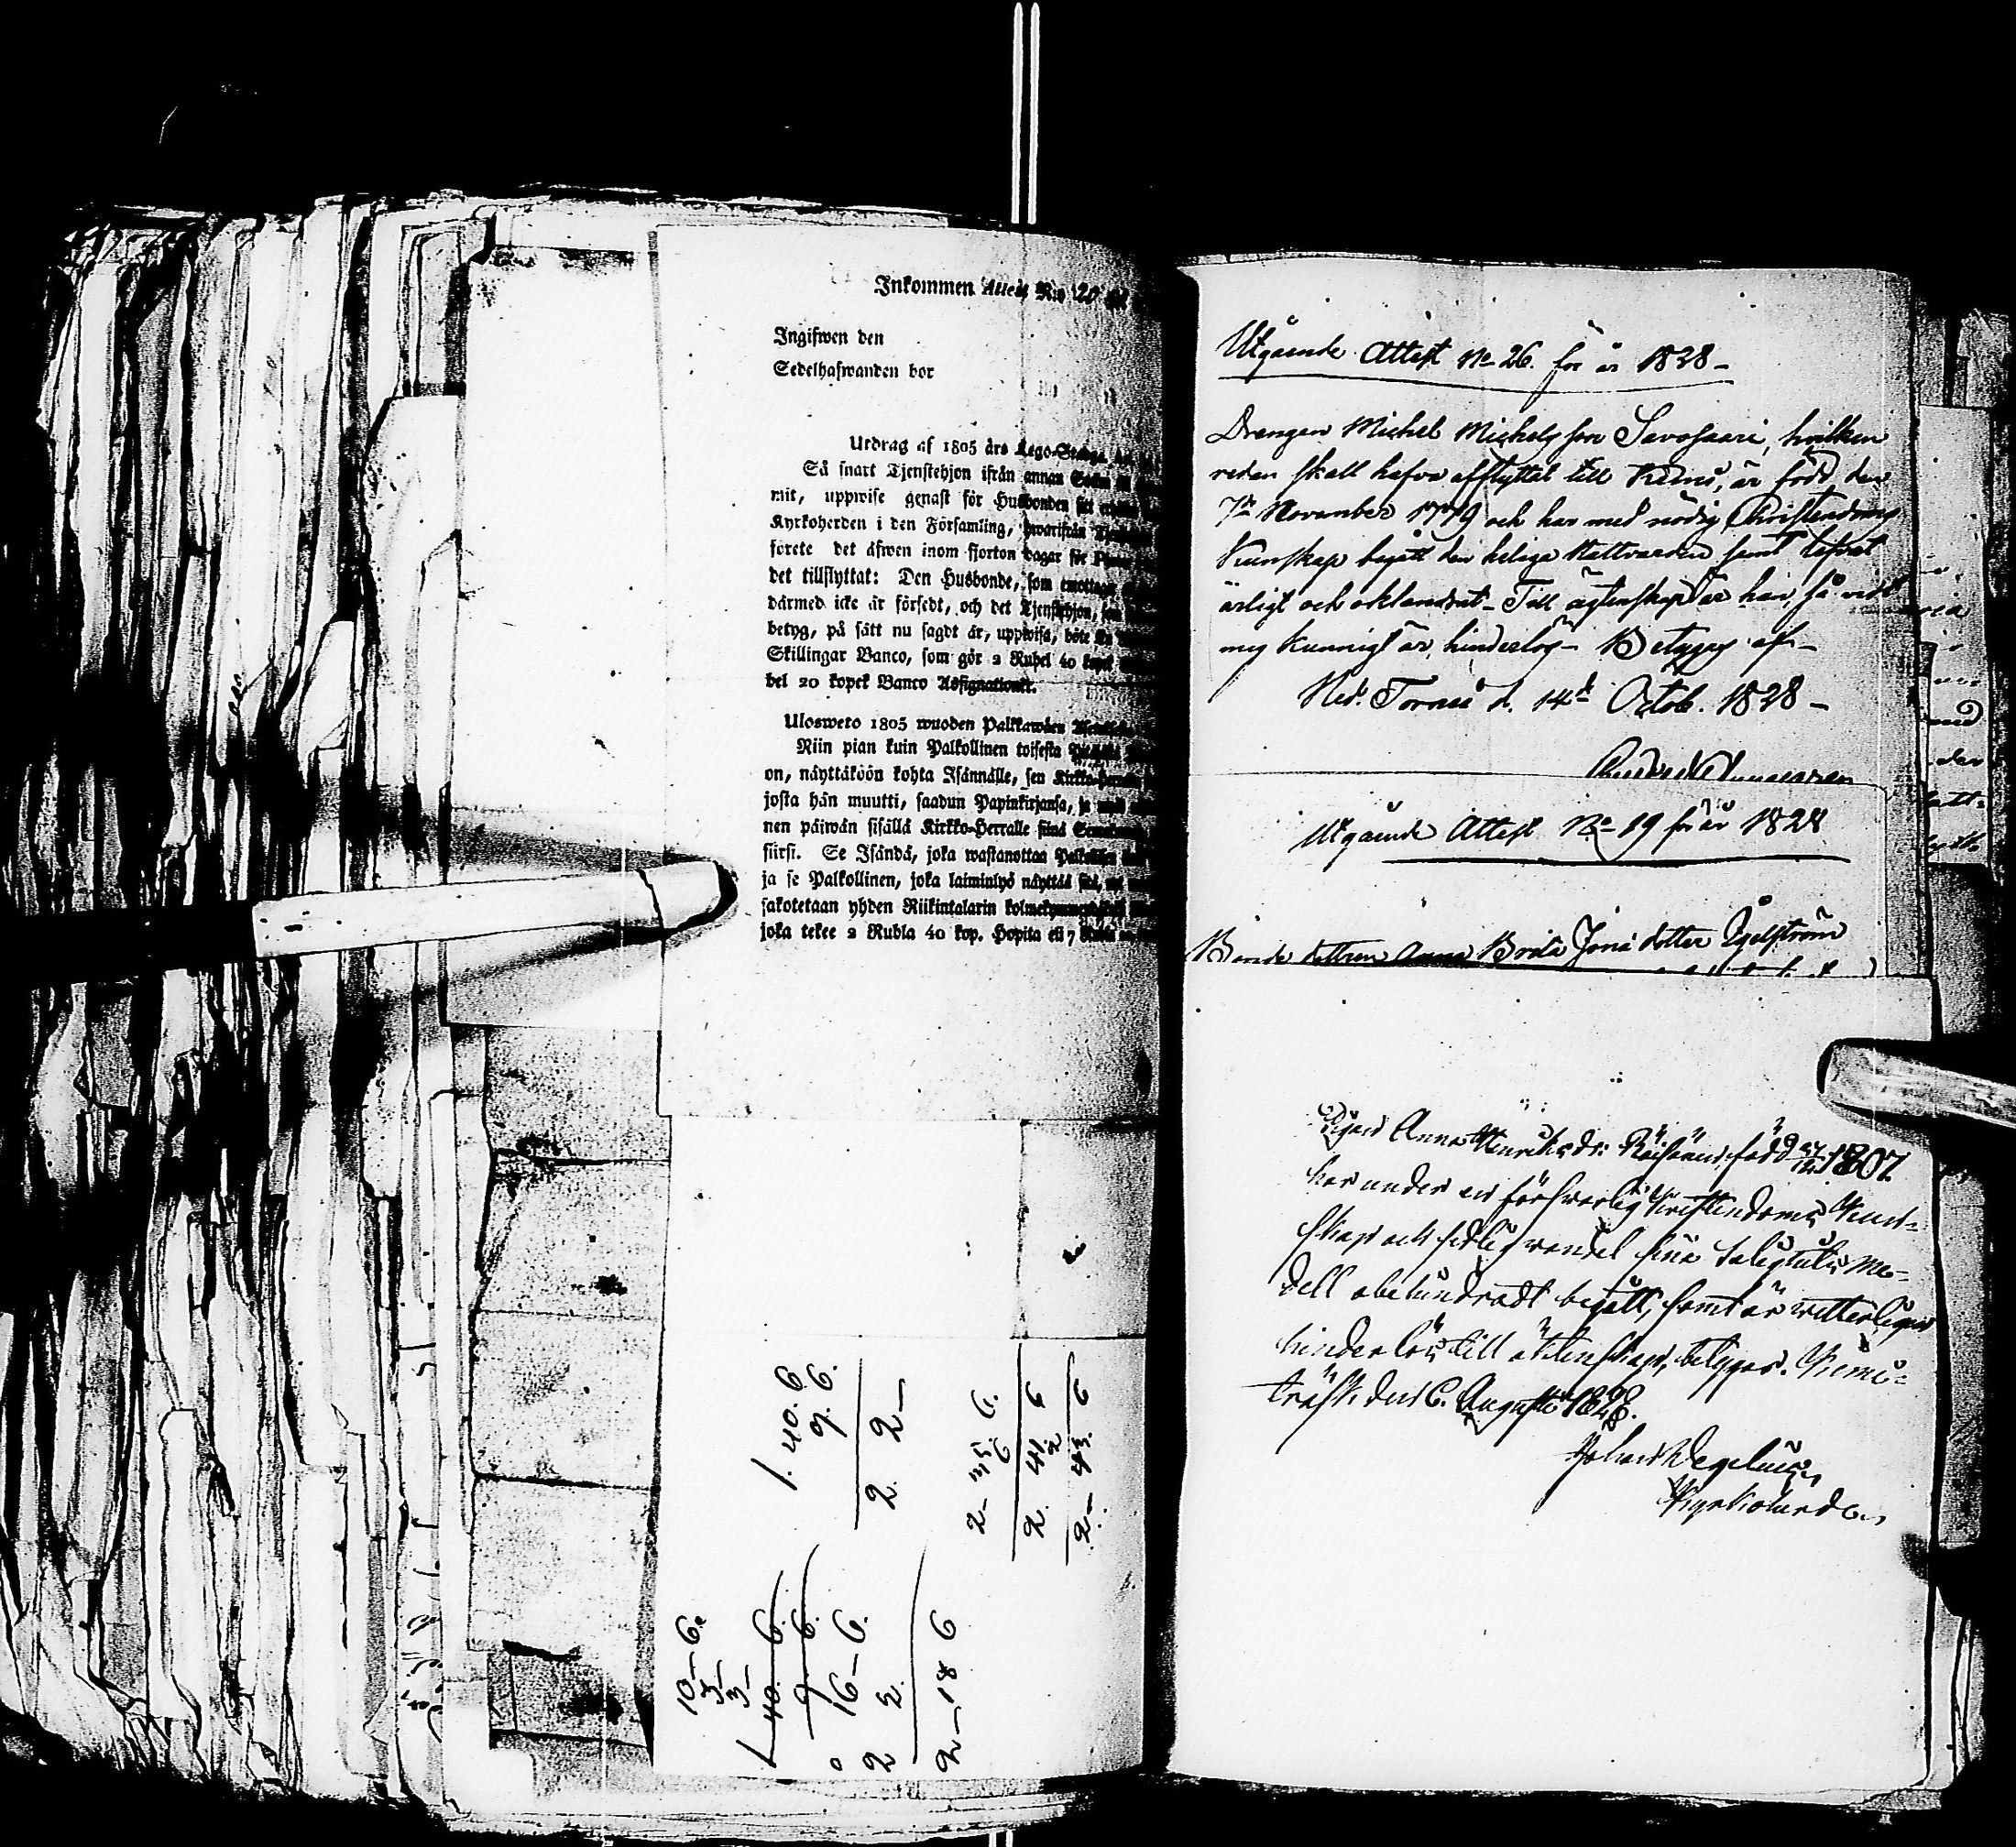 Inkommen Attest N:o 20
Ingifwen den
Sedelhafwanden bor
Utdrag af 1805 års Lego-Stadga
Så snart Tjenstehjon ifrån annan Sokn
mit, uppwise genast för Husbonden sitt
Kyrkoherden i den Församling, hwarifrån
förete det äfwen inom fjorton dagar för
det tillflyttat: Den Husbonde, som emottager
därmed icke är försedt, och det Tjenstehjon, som
betyg, på sätt nu sagdt är, uppwisa, böte
Skillingar Banco, som gör 2 Rubel 40 kopek
bel 20 kopek Banco Assignationer.
Ulosweto 1805 wuoden Palkkawäen
Niin pian kuin Palkollinen toisesta
on, näyttäköön kohta Isännälle, sen Kirkko-Herran
josta hän muutti, saadun Papinkirjansa, ja
nen päiwän sisällä Kirkko-Herralle siinä
siirsi. Se Isändä, joka wastanottaa Palkollisen
ja se Palkollinen, joka laiminlyö näyttää sitä,
sakotetaan yhden Riikintalarin
joka tekee 2 Rubla 40 kop. Hopita eli 7 Rubla
1. 40. 6
9. 6.
2. 2 —
2 - 35. 6.
6
2. 41. 6
2
2 - 43. 6
10 - 6.
3 -
3 -
1 40. 6.
9. 6.
0 16 - 6.
2 2.
2 - 18 6
Utgående Attest No 26. för år 1828 -
Drengen Michel Michelsson Savosaari, hvilken
redan skall hafva afflyttat till Kemi, är född den
7de November 1779 och har med nödig Christendoms
Kunskap begått den heliga Nattvarden samt lefvat
ärligt och oklandrat - Till ägtenskap är han, så vidt
mig kunnigt är, hinderlös - Betyges af -
Ned. Torneå d. 14de Octob. 1828 -
Utgående Attest No 19 för år 1828
Bonde dottren Anna Brita Jons dotter
Pigan Anna Henriksdr: Räisänen, född 27/12 1807.
har under en försvarlig Christendoms Kun-
skap och sedlig wandel sina salighets me-
dell obehindradt begått, samt är witterligen
hinderlös till äktenskap, betygar. Kemi-
träsk den 6. Augusti 1828.
Johan Wegelius,
Kyrkoherde.